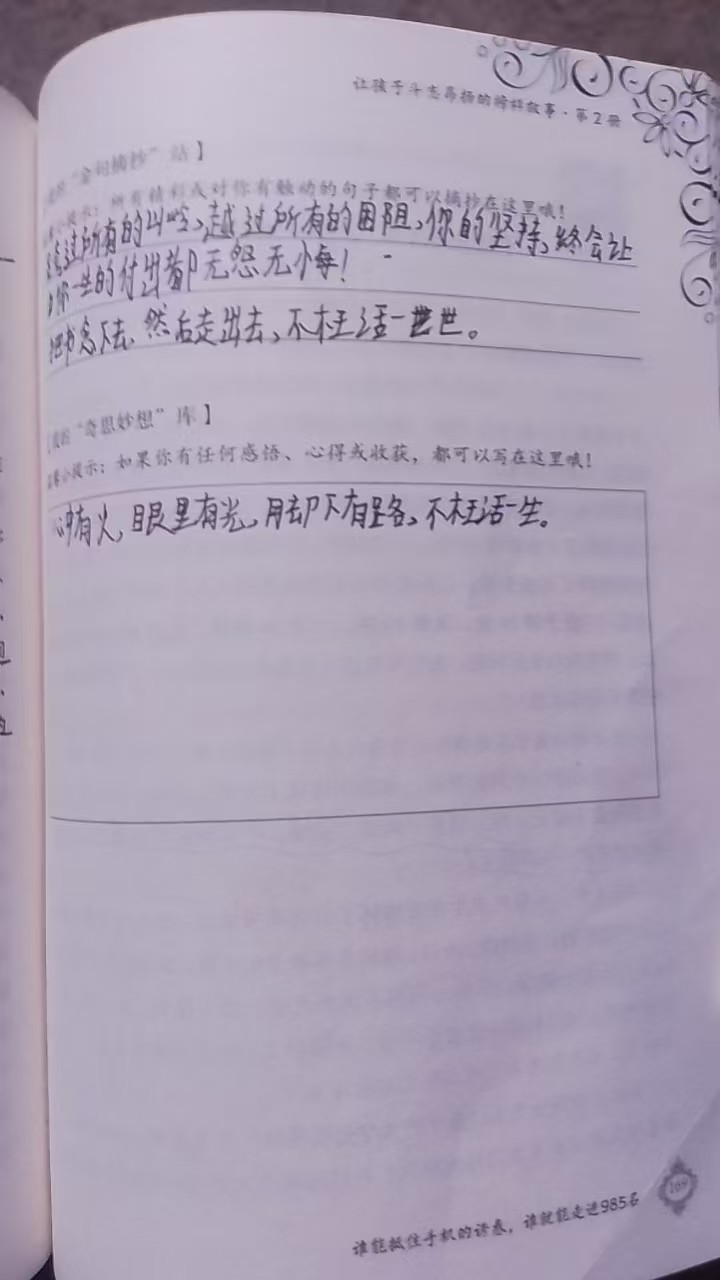 让孩子斗志昂扬的榜样故事·第2册
“金句摘抄”站】
小提示：所有精彩或对你有触动的句子都可以摘抄在这里哦！
过所有的山岭，越过所有的困阻，你的坚持，终会让
你一生的付出都无怨无悔！
把书念下去，然后走出去，不枉活一世。
“奇思妙想”库】
小提示：如果你有任何感悟、心得或收获，都可以写在这里哦！
心中有火，眼里有光，脚下有路，不枉活一生。
169
谁能抵住手机的诱惑，谁就能走进985名